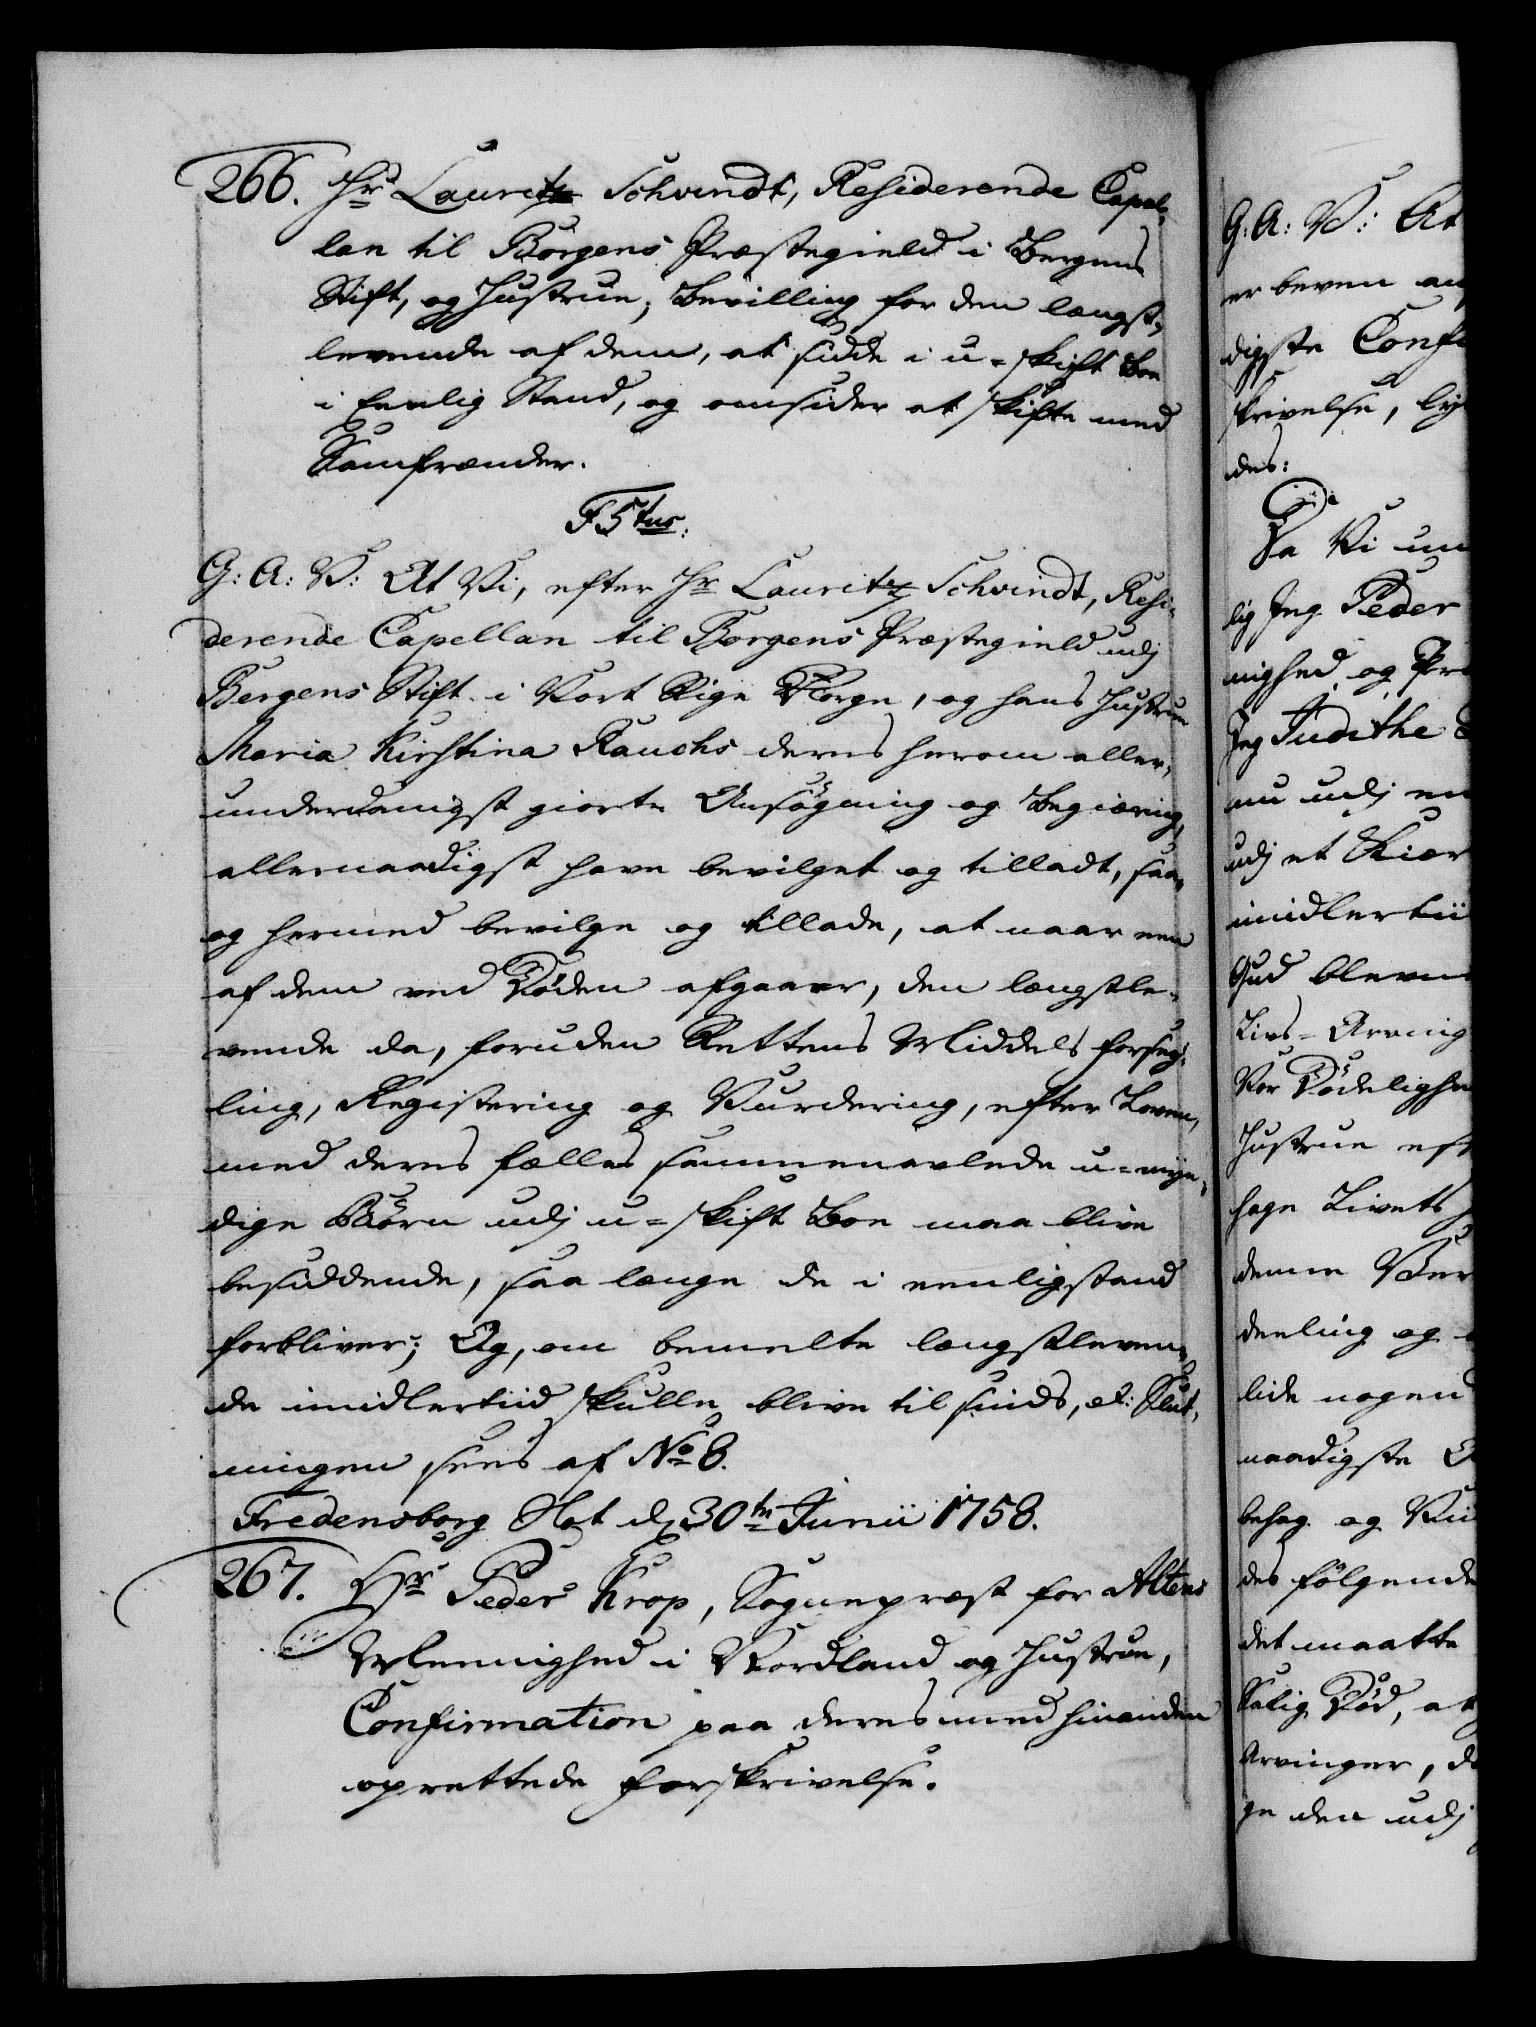 266. Hr Lauritz Schvindt, Residerende Capel-
lan til Borgens Præstegield i Bergens
Stift, og Hustrue, Bevilling for den længst-
levende af dem, at sidde i u-skift Boe
i Eenlig Stand, og omsider at skifte med
Samfrænder.
F5tus.
G: A: V: At Vi, efter Hr Lauritz Schvindt, Resi-
derende Capellan til Borgens Præstegield udj
Bergens Stift i Vort Rige Norge, og hans Hustrue
Maria Kirstina Rauchs deres herom aller-
underdanigst giorte Ansøgning og Begiæring,
allernaadigst have bevilget og tilladt, saa
og hermed bevilge og tillade, at naar een
af dem ved Døden afgaaer, den længstle-
vende da, foruden Rettens Middels forseg-
ling, Registering og Vurdering, efter Loven,
med deres fælles sammenavlede u-myn-
dige Børn udj u-skift Boe maa blive
besiddende, saa længe de i eenligstand
forbliver; Og, om bemelte længstleven-
de imidlertiid skulle blive til sinds, et: Slut-
ningen sees af No 8.
Fredensborg Slot d. 30te Junii 1758.
267. Hr Peder Krop, Sognepræst for Altens
Meenighed i Nordland og Hustrue,
Confirmation paa deres med hinanden
oprettede forskrivelse.
G: A: V: At
er beven an
digste Conf
skrivelse, ly
des:
Da Vi un
lig Jeg Peder
nighed og Pr
Jeg Judithe
nu udj en
udj et Kiær
imidlertii
Gud bleven
Livs-Arving
Vor Dødelighe
Hustrue eft
hage Livets
denne Ver
deeling og
lide nogen
naadigste
behag og Vii
des følgende
det maatte
Salig Død, at
Arvinger, d
ge den udj